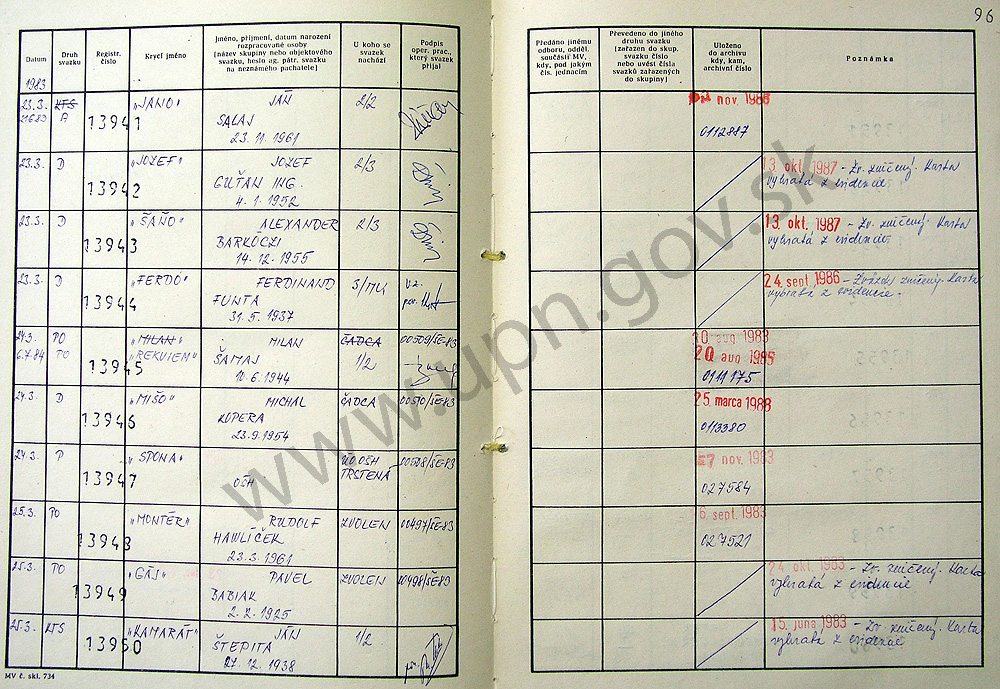 96
Datum
Druh svazku
Registr. číslo
Krycí jméno
Jméno, příjmení, datum narození
rozpracované osoby
(název skupiny nebo objektového
svazku, heslo ag. pátr. svazku
na neznámého pachatele)
U koho se
svazek
nachází
Podpis
oper. prac.,
který svazek
přijal
Předáno jinému
odboru, odděl.
součásti MV,
kdy, pod jakým
čís. jednacím
Převedeno do jiného
druhu svazku
(zařazen do skup.
svazku číslo
nebo uvést čísla
svazků zařazených
do skupiny)
Uloženo
do archivu
kdy, kam,
archivní číslo
Poznámka
1983
23.3. KTS "JANO" JÁN 2/2 nov. 1986
A 13941 SALAJ 0112887
23.11.1961
23.3. D "JOZEF" JOZEF 2/3 13. okt. 1987 - Zv. zničený. Karta
13942 GUŤAN ING. vybratá z evidencie
4.1.1952
23.3. D "ŠAŇO" ALEXANDER 2/3 13. okt. 1987 - Zv. zničený. Karta
13943 BARKÓCZI vybratá z evidencie
14.12.1955
23.3. D "FERDO" FERDINAND 24. sept. 1986 - Zväzok zničený. Karta
13944 FUNTA vybratá z evidencie.
31.5.1937
24.3. PO "MILAN" MILAN ČADCA 00509/ŠE-83 aug 1983
6.7.84 TO "REKVIEM" ŠAMAJ 1/2 20 aug 1985
13945 10.6.1944 0111175
24.3. D "MIŠO" MICHAL ČADCA 00510/ŠE-83 25 marca 1988
13946 KUPERA 0113380
23.9.1954
24.3. P "SPONA" OO OŠH 00508/ŠE-83 nov. 1983
13947 OŠH TRSTENÁ 027584
25.3. PO "MONTÉR" RUDOLF ZVOLEN 00497/ŠE-83 sept. 1983
13948 HAWLÍČEK 027521
23.3.1961
25.3. PO "GÁJ" PAVEL ZVOLEN 00498/ŠE-83 24 okt. 1983 - Zv. zničený. Karta
13949 BABIAK vybratá z evidencie
1925
25.3. KTS "KAMARÁT" JÁN 1/2 15. júna 1983 - Zv. zničený. Karta
13950 ŠTEPITA vybratá z evidencie
27.12.1938
MV č. skl. 734
www.upn.gov.sk